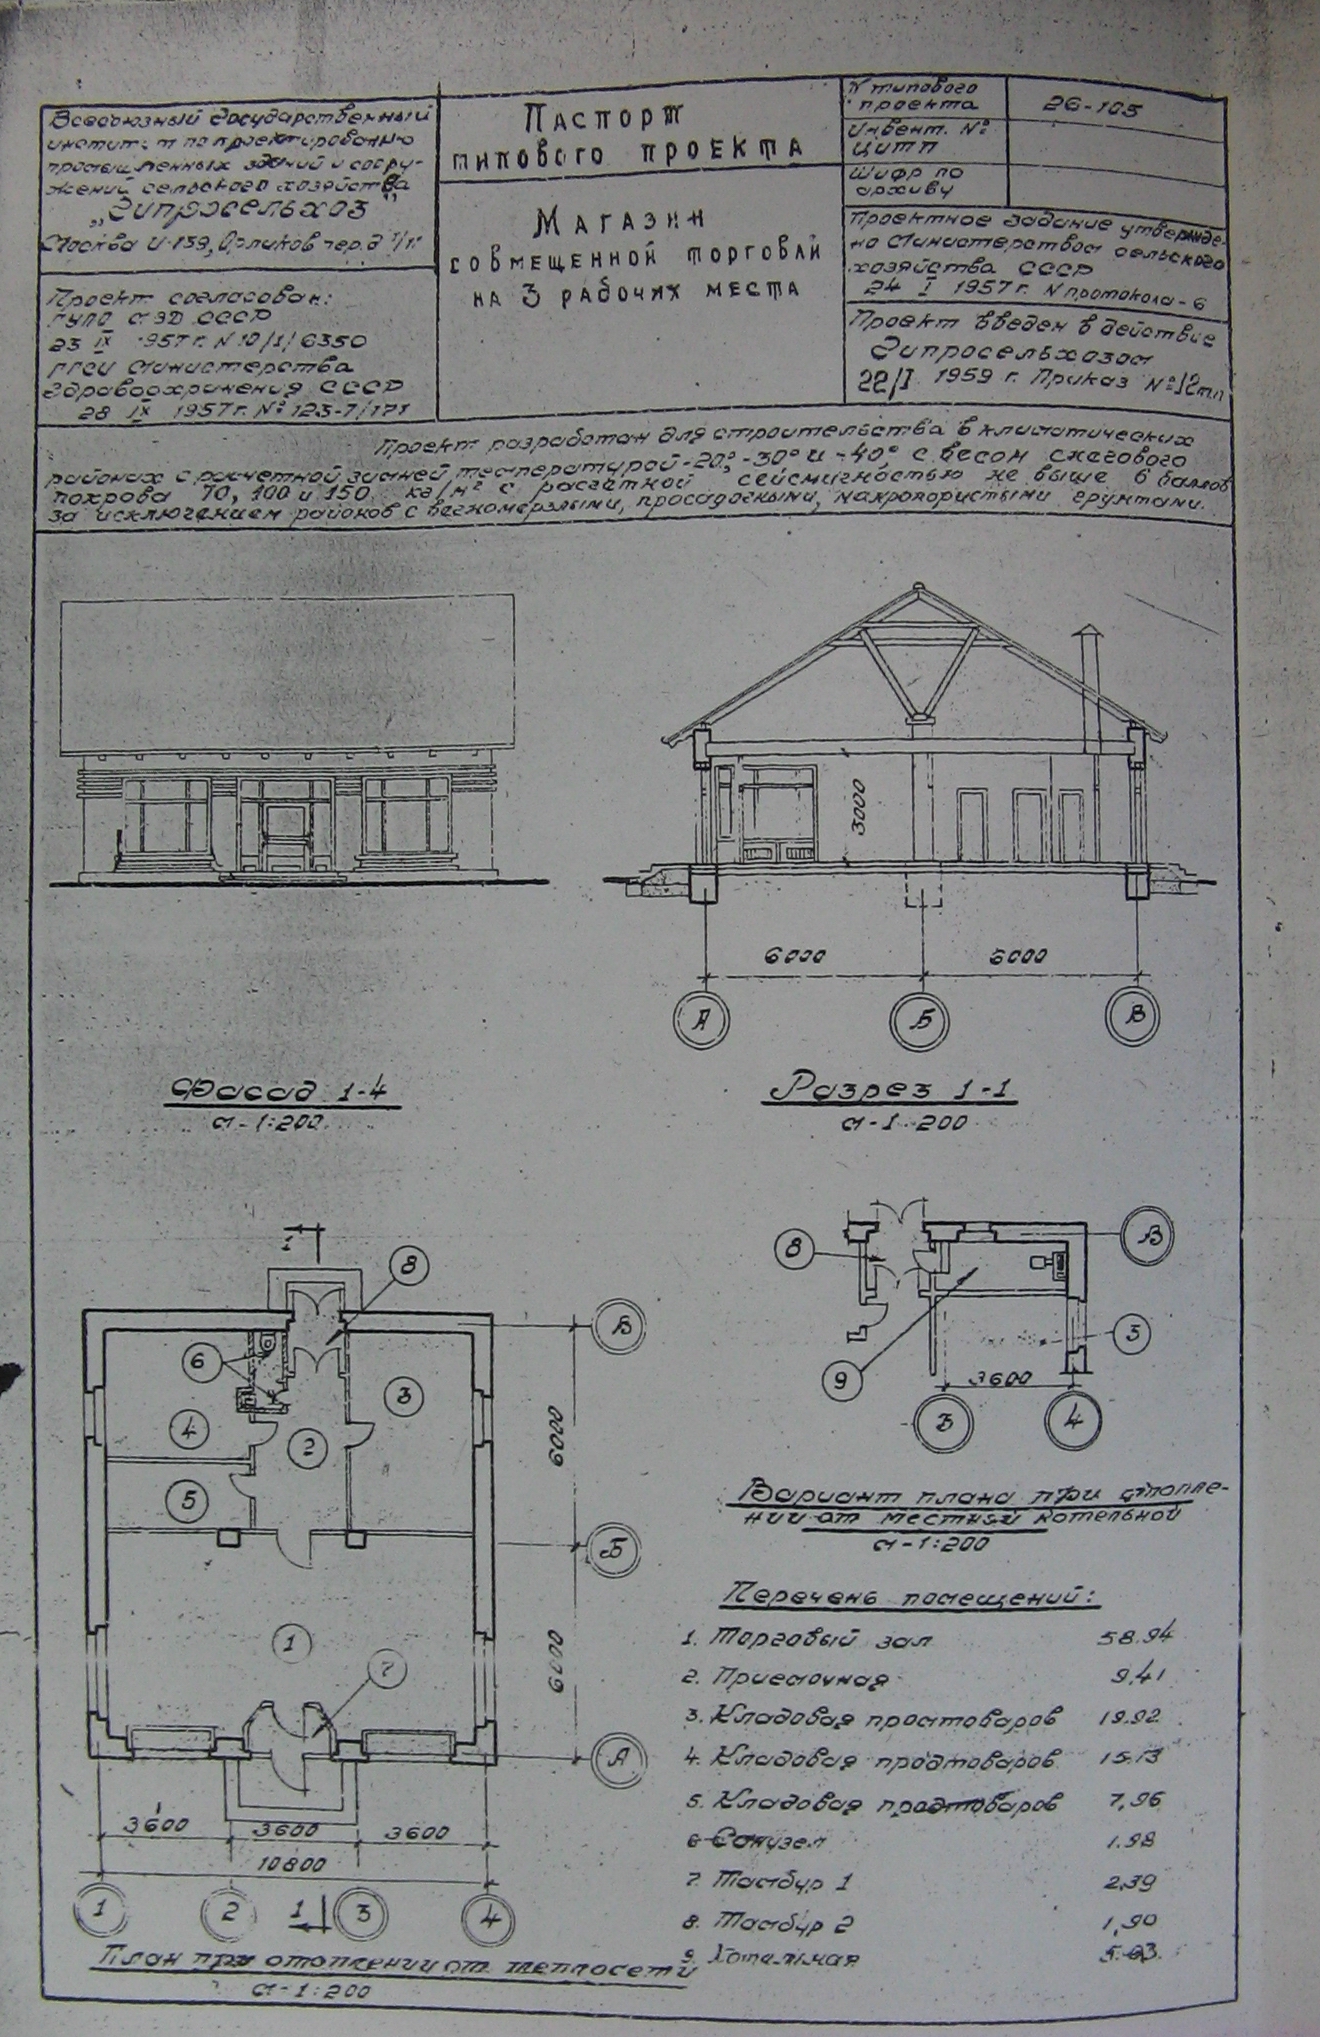 Всесоюзный государственный
институт по проектированию
промышленных зданий и соору-
жений сельского хозяйства
„Гипросельхоз"
Москва И-139, Орликов пер. д 1/11
Проект согласован:
ГУПО МВД СССР
23 IX 1957 г. N 10/1/6350
ГГСИ Министерства
Здравоохранения СССР
28 IX 1957 г. № 123-7/171
Паспорт
типового проекта
Магазин
совмещенной торговли
на 3 рабочих места
N типового
проекта
26-105
Инвент. №
ЦИТП
Шифр по
архиву
Проектное задание утвержде-
но Министерством сельского
хозяйства СССР
24 I 1957 г. N протокола - 6
Проект введен в действие
Гипросельхозом
22/I 1959 г. Приказ № 12тп
Проект разработан для строительства в климатических
районах с расчетной зимней температурой -20°, -30° и -40° с весом снегового
покрова 70, 100 и 150 кг/м² с расчетной сейсмичностью не выше 6 баллов
за исключением районов с вечномерзлыми, просадочными, макропористыми грунтами.
3000
6000 6000
А Б В
Фасад 1-4
М-1:200
Разрез 1-1
М-1:200
1
8
В
6
3
4
2
5
6000
Б
1
7
6000
А
3600 3600 3600
10800
1 2 1 3 4
План при отоплении от теплосети
М-1:200
8
В
3
9
3600
3 4
Вариант плана при отопле-
нии от местной котельной
М-1:200
Перечень помещений:
1. Торговый зал 58.94
2. Приемочная 9,41
3. Кладовая промтоваров 19.92
4. Кладовая продтоваров 15.13
5. Кладовая продтоваров 7,96
6 Санузел 1.98
7. Тамбур 1 2,39
8. Тамбур 2 1,90
9. Котельная